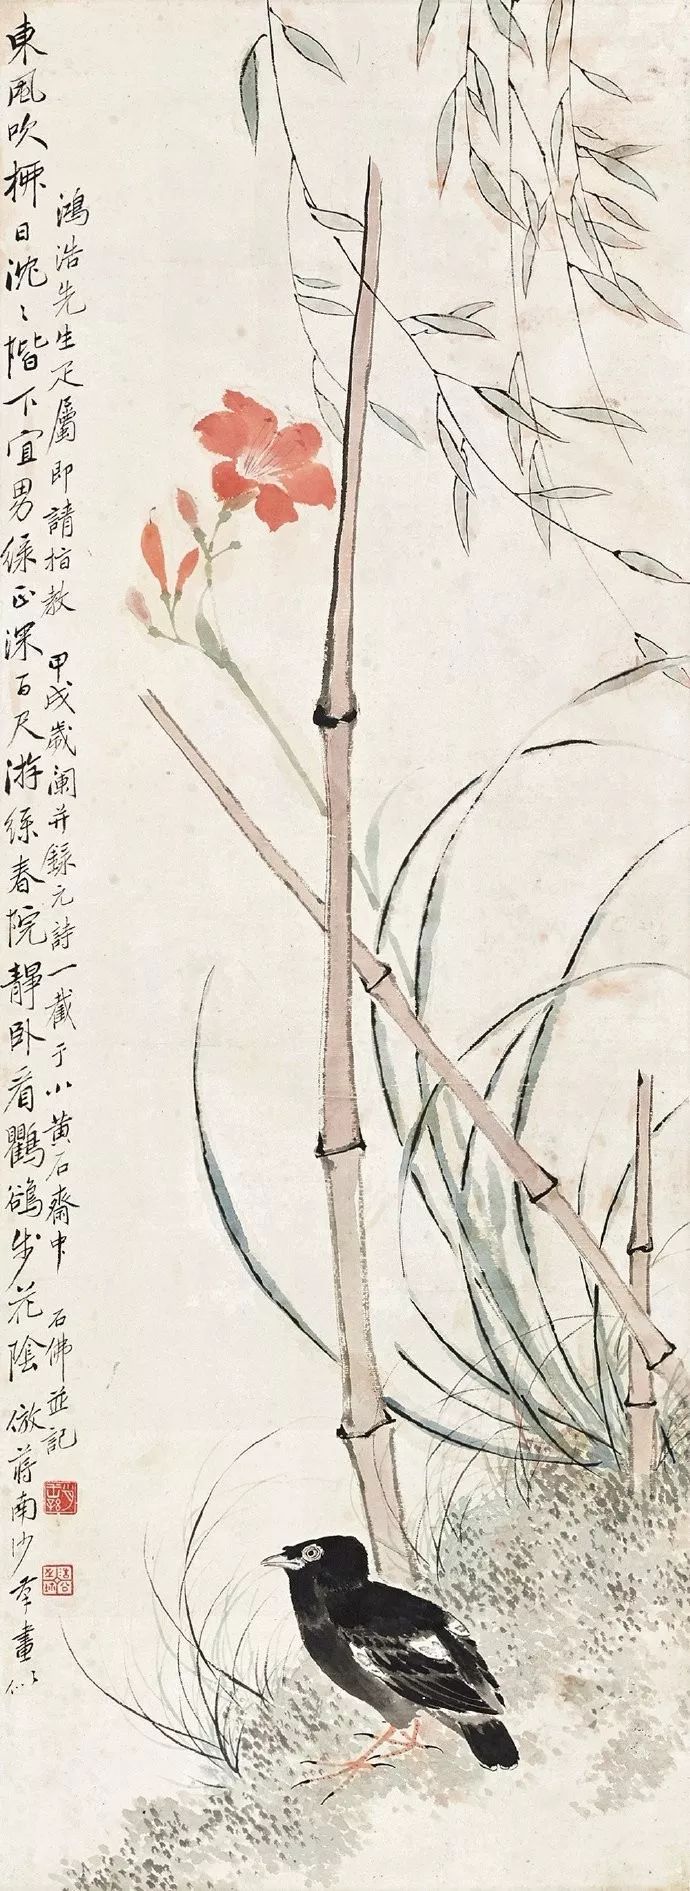 東風吹柳日沈〻階下宜男綠正深百尺游絲春院靜臥看鸜鵒步花陰 倣蔣南沙本畫似
鴻浩先生疋屬即請指教 甲戌歲闌并錄元詩一截于小黃石齋中 石佛並記